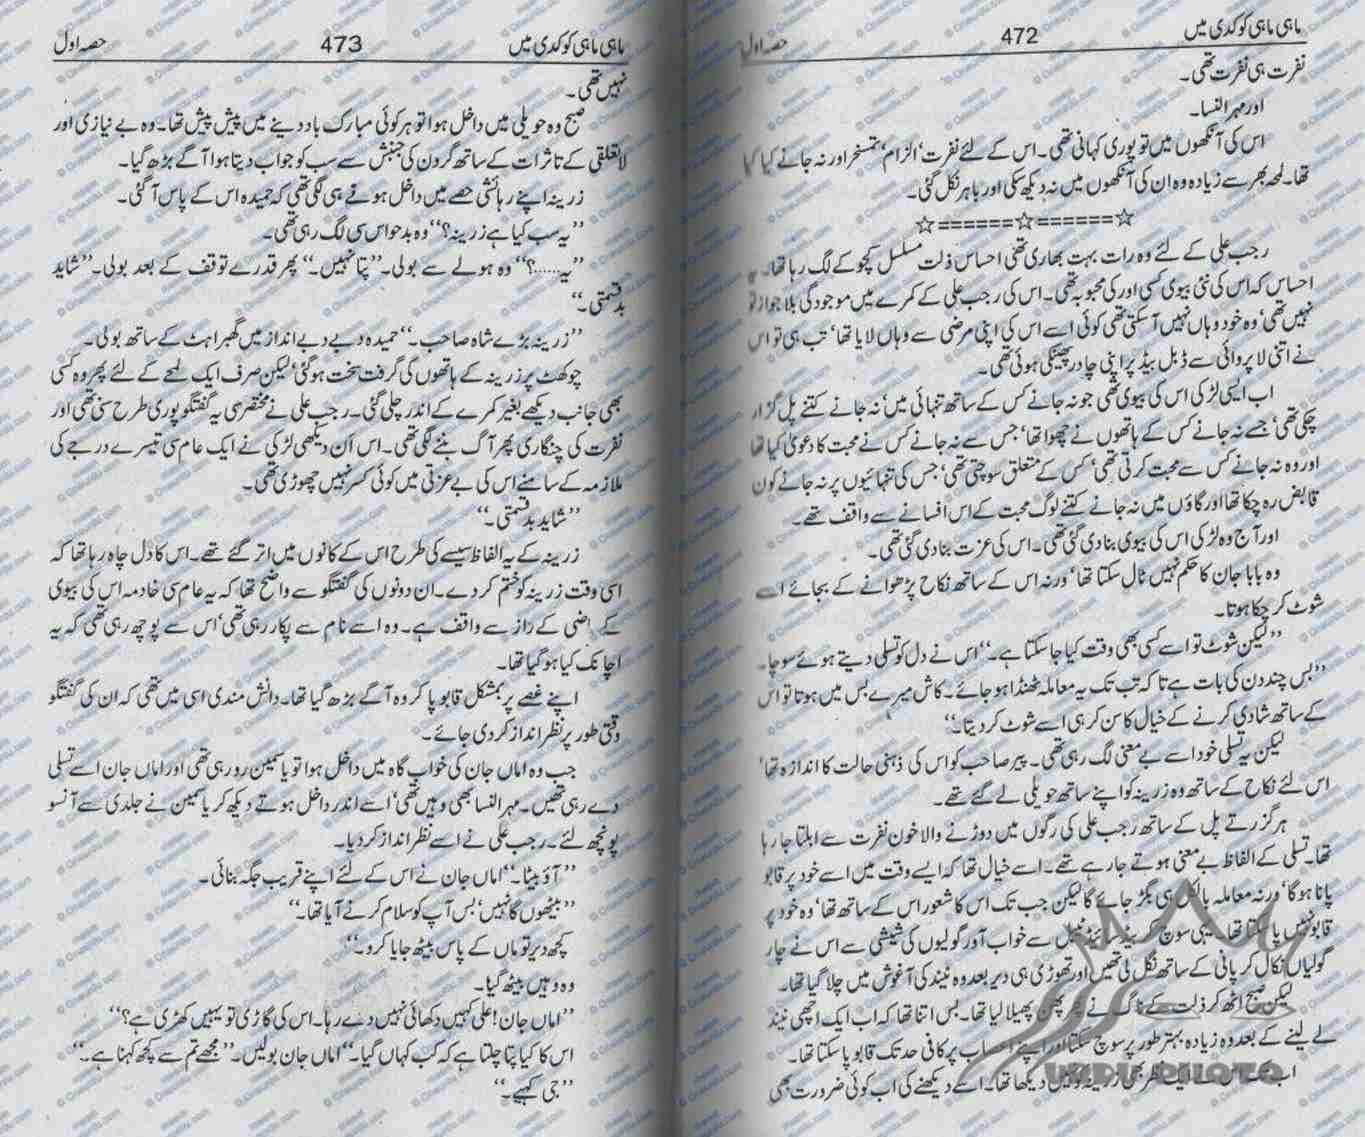 ماہی ماہی کوکدی میں 472 حصہ اول
نفرت ہی نفرت تھی۔
اور مہر النسا۔
اس کی آنکھوں میں تو پوری کہانی تھی۔ اس کے لئے نفرت‘ الزام‘ تمسخر اور نہ جانے کیا کیا
تھا۔ لمحہ بھر سے زیادہ وہ ان کی آنکھوں میں نہ دیکھ سکی اور باہر نکل گئی۔
☆======☆======☆
رجب علی کے لئے وہ رات بہت بھاری تھی احساس ذلت مسلسل کچوکے لگ رہا تھا۔ یہ
احساس کہ اس کی نئی بیوی کسی اور کی محبوبہ تھی۔ اس کی رجب علی کے کمرے میں موجودگی بلا جواز تو
نہیں تھی‘ وہ خود وہاں نہیں آ سکتی تھی کوئی اسے اس کی اپنی مرضی سے وہاں لایا تھا‘ تب ہی تو اس
نے اتنی لا پروائی سے ڈبل بیڈ پر اپنی چادر پھینکی ہوئی تھی۔
اب ایسی لڑکی اس کی بیوی تھی جو نہ جانے کس کے ساتھ تنہائی میں‘ نہ جانے کتنے پل گزار
چکی تھی‘ جسے نہ جانے کس کے ہاتھوں نے چھوا تھا‘ جس سے نہ جانے کس نے محبت کا دعویٰ کیا تھا
اور وہ نہ جانے کس سے محبت کرتی تھی‘ کس کے متعلق سوچتی تھی‘ جس کی تنہائیوں پر نہ جانے کون
قابض رہ چکا تھا اور گاؤں میں نہ جانے کتنے لوگ محبت کے اس افسانے سے واقف تھے۔
اور آج وہ لڑکی اس کی بیوی بنا دی گئی تھی۔ اس کی عزت بنا دی گئی تھی۔
وہ بابا جان کا حکم نہیں ٹال سکتا تھا‘ ورنہ اس کے ساتھ نکاح پڑھوانے کے بجائے اسے
شوٹ کر چکا ہوتا۔
’’لیکن شوٹ تو اسے کسی بھی وقت کیا جا سکتا ہے۔‘‘ اس نے دل کو تسلی دیتے ہوئے سوچا۔
’’بس چند دن کی بات ہے تا کہ تب تک یہ معاملہ ٹھنڈا ہو جائے۔ کاش میرے بس میں ہوتا تو اس
کے ساتھ شادی کرنے کے خیال کا سن کر ہی اسے شوٹ کر دیتا۔‘‘
لیکن یہ تسلی خود اسے بے معنی لگ رہی تھی۔ پیر صاحب کو اس کی ذہنی حالت کا اندازہ تھا‘
اس لئے نکاح کے ساتھ وہ زرینہ کو اپنے ساتھ حویلی لے گئے تھے۔
ہر گزرتے پل کے ساتھ رجب علی کی رگوں میں دوڑنے والا خون نفرت سے ابلتا جا رہا
تھا۔ تسلی کے الفاظ بے معنی ہوتے جا رہے تھے۔ اسے خیال تھا کہ ایسے وقت میں اسے خود پر قابو
پانا ہو گا‘ ورنہ معاملہ بالکل ہی بگڑ جائے گا لیکن جب تک اس کا شعور اس کے ساتھ تھا‘ وہ خود پر
قابو نہیں پا سکتا تھا۔ یہی سوچ کر بیڈ سائیڈ ٹیبل سے خواب آور گولیوں کی شیشی سے اس نے چار
گولیاں نکال کر پانی کے ساتھ نگل لی تھیں اور تھوڑی ہی دیر بعد وہ نیند کی آغوش میں چلا گیا تھا۔
لیکن صبح اٹھ کر ذلت کے ناگ نے پھر پھن پھیلا لیا تھا۔ بس اتنا تھا کہ اب ایک اچھی نیند
لے لینے کے بعد وہ زیادہ بہتر طور پر سوچ سکتا اور اپنے اعصاب پر کافی حد تک قابو پا سکتا تھا۔
اب تک اس نے ایک نظر بھی زرینہ کو نہیں دیکھا تھا۔ اسے دیکھنے کی اب کوئی ضرورت بھی
ماہی ماہی کوکدی میں 473 حصہ اول
نہیں تھی۔
صبح وہ حویلی میں داخل ہوا تو ہر کوئی مبارک باد دینے میں پیش پیش تھا۔ وہ بے نیازی اور
لا تعلقی کے تاثرات کے ساتھ گردن کی جنبش سے سب کو جواب دیتا ہوا آگے بڑھ گیا۔
زرینہ اپنے رہائشی حصے میں داخل ہونے ہی لگی تھی کہ حمیدہ اس کے پاس آ گئی۔
’’یہ سب کیا ہے زرینہ؟‘‘ وہ بدحواس سی لگ رہی تھی۔
’’یہ......؟‘‘ وہ ہولے سے بولی۔ ’’پتا نہیں۔‘‘ پھر قدرے توقف کے بعد بولی۔ ’’شاید
بدقسمتی۔‘‘
’’زرینہ بڑے شاہ صاحب۔‘‘ حمیدہ دبے دبے انداز میں گھبراہٹ کے ساتھ بولی۔
چوکھٹ پر زرینہ کے ہاتھوں کی گرفت سخت ہو گئی‘ لیکن صرف ایک لمحے کے لئے پھر وہ کسی
بھی جانب دیکھے بغیر کمرے کے اندر چلی گئی۔ رجب علی نے مختصر سی یہ گفتگو پوری طرح سنی تھی اور
نفرت کی چنگاری پھر آگ بننے لگی تھی۔ اس ان دیکھی لڑکی نے ایک عام سی تیسرے درجے کی
ملازمہ کے سامنے اس کی بے عزتی میں کوئی کسر نہیں چھوڑی تھی۔
’’شاید بدقسمتی۔‘‘
زرینہ کے یہ الفاظ سیسے کی طرح اس کے کانوں میں اتر گئے تھے۔ اس کا دل چاہ رہا تھا کہ
اسی وقت زرینہ کو ختم کر دے۔ ان دونوں کی گفتگو سے واضح تھا کہ یہ عام سی خادمہ اس کی بیوی
کے ماضی کے راز سے واقف ہے۔ وہ اسے نام سے پکار رہی تھی‘ اس سے پوچھ رہی تھی کہ یہ
اچانک کیا ہو گیا تھا۔
اپنے غصے پر بمشکل قابو پا کر وہ آگے بڑھ گیا تھا۔ دانش مندی اسی میں تھی کہ ان کی گفتگو
وقتی طور پر نظر انداز کر دی جائے۔
جب وہ اماں جان کی خواب گاہ میں داخل ہوا تو یاسمین رو رہی تھی اور اماں جان اسے تسلی
دے رہی تھیں۔ مہر النسا بھی وہیں تھی‘ اسے اندر داخل ہوتے دیکھ کر یاسمین نے جلدی سے آنسو
پونچھ لئے۔ رجب علی نے اسے نظر انداز کر دیا۔
’’آؤ بیٹا۔‘‘ اماں جان نے اس کے لئے اپنے قریب جگہ بنائی۔
’’بیٹھوں گا نہیں‘ بس آپ کو سلام کرنے آیا تھا۔‘‘
کچھ دیر تو ماں کے پاس بیٹھ جایا کرو۔‘‘
وہ وہیں بیٹھ گیا۔
’’اماں جان! علی کہیں دکھائی نہیں دے رہا۔ اس کی گاڑی تو یہیں کھڑی ہے؟‘‘
اس کا کیا پتا چلتا ہے کہ کب کہاں گیا۔‘‘ اماں جان بولیں۔ ’’مجھے تم سے کچھ کہنا ہے۔‘‘
’’جی کہیے۔‘‘